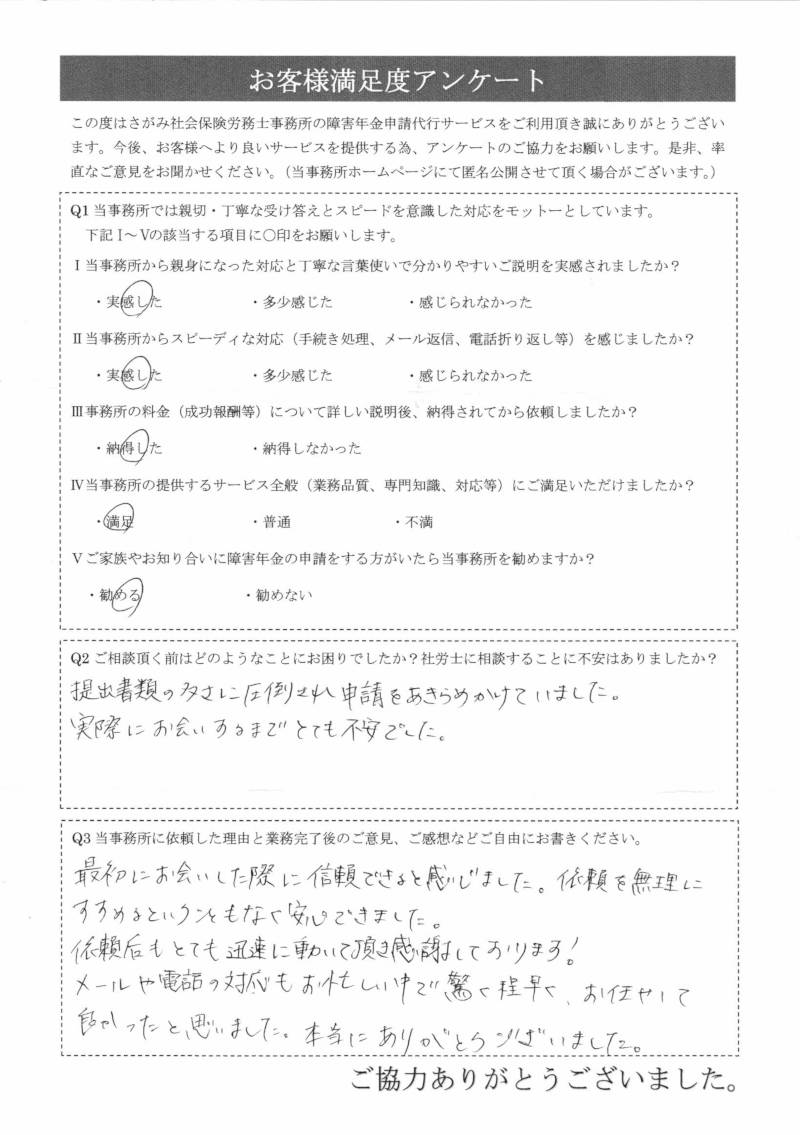 お客様満足度アンケート
この度はさがみ社会保険労務士事務所の障害年金申請代行サービスをご利用頂き誠にありがとうござい
ます。今後、お客様へより良いサービスを提供する為、アンケートのご協力をお願いします。是非、率
直なご意見をお聞かせください。（当事務所ホームページにて匿名公開させて頂く場合がございます。）
Q1 当事務所では親切・丁寧な受け答えとスピードを意識した対応をモットーとしています。
下記Ⅰ～Ⅴの該当する項目に〇印をお願いします。
Ⅰ当事務所から親身になった対応と丁寧な言葉使いで分かりやすいご説明を実感されましたか？
・実感した ・多少感じた ・感じられなかった
Ⅱ当事務所からスピーディな対応（手続き処理、メール返信、電話折り返し等）を感じましたか？
・実感した ・多少感じた ・感じられなかった
Ⅲ事務所の料金（成功報酬等）について詳しい説明後、納得されてから依頼しましたか？
・納得した ・納得しなかった
Ⅳ当事務所の提供するサービス全般（業務品質、専門知識、対応等）にご満足いただけましたか？
・満足 ・普通 ・不満
Ⅴご家族やお知り合いに障害年金の申請をする方がいたら当事務所を勧めますか？
・勧める ・勧めない
Q2 ご相談頂く前はどのようなことにお困りでしたか？社労士に相談することに不安はありましたか？
提出書類の多さに圧倒され申請をあきらめかけていました。
実際にお会いするまでとても不安でした。
Q3 当事務所に依頼した理由と業務完了後のご意見、ご感想などご自由にお書きください。
最初にお会いした際に信頼できると感じました。依頼を無理に
すすめるということもなく安心できました。
依頼后もとても迅速に動いて頂き感謝しております！
メールや電話の対応もお忙しい中で驚く程早く、お任せして
良かったと思いました。本当にありがとうございました。
ご協力ありがとうございました。